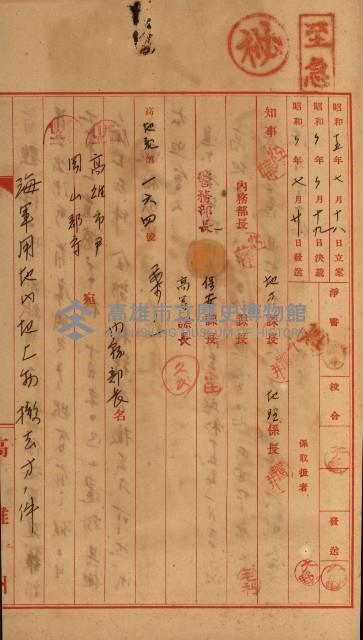 至急
秘
昭和十五年七月十八日立案
昭和 年 月十九日決裁
昭和 年七月廿日發送
淨書
校合
發送
係取扱者
知事
內務部長
警務部長
地方課長
地理係長
保安課長
高等課長
高地親第一六四號
案
內務部長名
高雄市尹
岡山郡守
宛
海軍用地內地上物撤去方ノ件
高雄州
高雄市立歷史博物館
KAOHSIUNG MUSEUM OF HISTORY